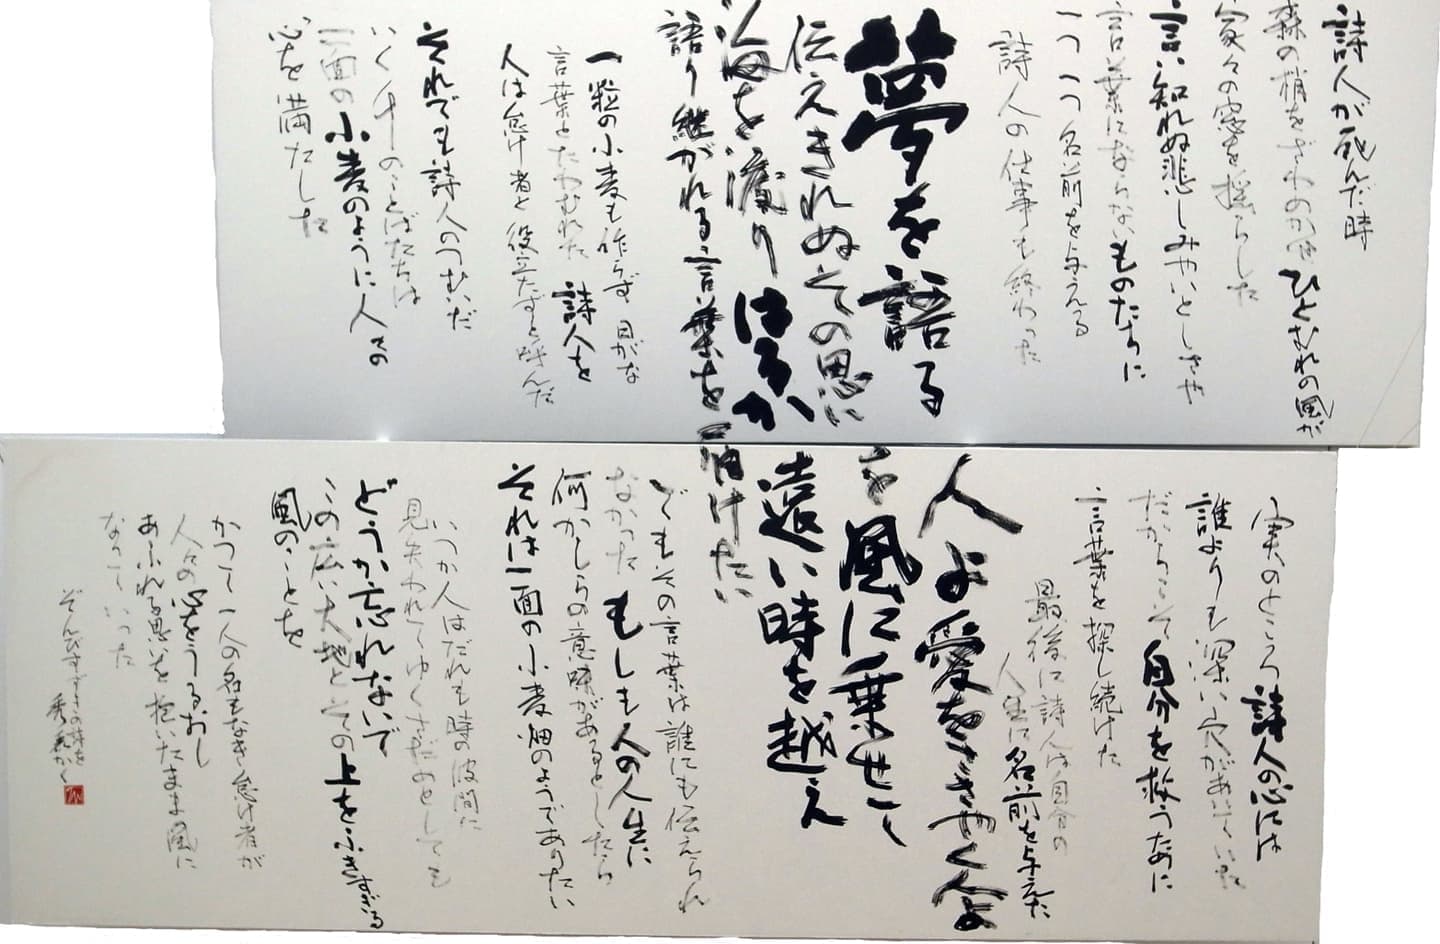 詩人が死んだ時
森の梢をざわめかせ ひとむれの風が
家々の窓を揺らした
言い知れぬ悲しみやいとしさや
言葉にならないものたちに
一つ一つ名前を与える
詩人の仕事も終わった
夢を語る
伝えきれぬその思い
海を渡り はるか
語り継がれる言葉を
一粒の小麦も作らず
言葉とたわむれた 詩人を
人は怠け者と役立たずと呼んだ
それでも詩人のつむいだ
いく千のことばたちは
一面の小麦のように人々の
心を満たした
実のところ詩人の心には
誰よりも深い穴があいていた
だからこそ自分を救うために
言葉を探し続けた
最後に詩人は自分の
人生に名前を与えた
人よ愛をささやく人よ
を風に乗せて
遠い時を越え
届けたい
でもその言葉は誰にも伝えられ
なかった もしも人の人生に
何かしらの意味があるとしたら
それは一面の小麦畑のようでありたい
いつか人はだれも時の波間に
見失われてゆくさだめとしても
どうか忘れないで
この広い大地とその上をふきすぎる
風のことを
かつて一人の名もなき怠け者が
人々の心をうるおし
あふれる思いを抱いたまま風に
なっていった